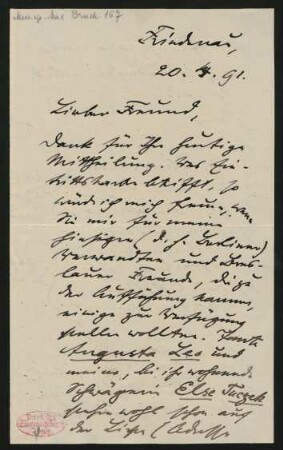 Mus. ep. Max Bruch 167
Friedenau,
20. 4. 91.
Lieber Freund,
Dank für Ihre heutige
Mittheilung. Was Ein-
trittskarten betrifft, so
würde ich mich freuen, wenn
Sie mir für meine
hiesigen (d. h. Berliner)
Verwandten und Bres-
lauer Freunde, die zu
der Aufführung kommen,
einige zur Verfügung
stellen wollten. Tante
Augusta Leo und
meine, bei ihr wohnende
Schwägerin Else Tuczek
stehen wohl schon auf
der Liste (Adresse